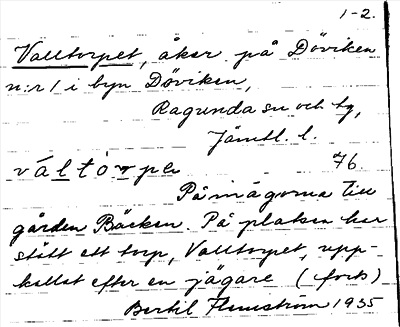 1-2.
Valltorpet, åker på Döviken
n:r 1 i byn Döviken,
Ragunda sn och tg,
Jämtl. l.
váltòrpe 76.
På inägorna till
gården Bäcken. På platsen har
stått ett torp, Valltorpet, upp-
kallat efter en jägare (forts)
Bertil Flemström 1935